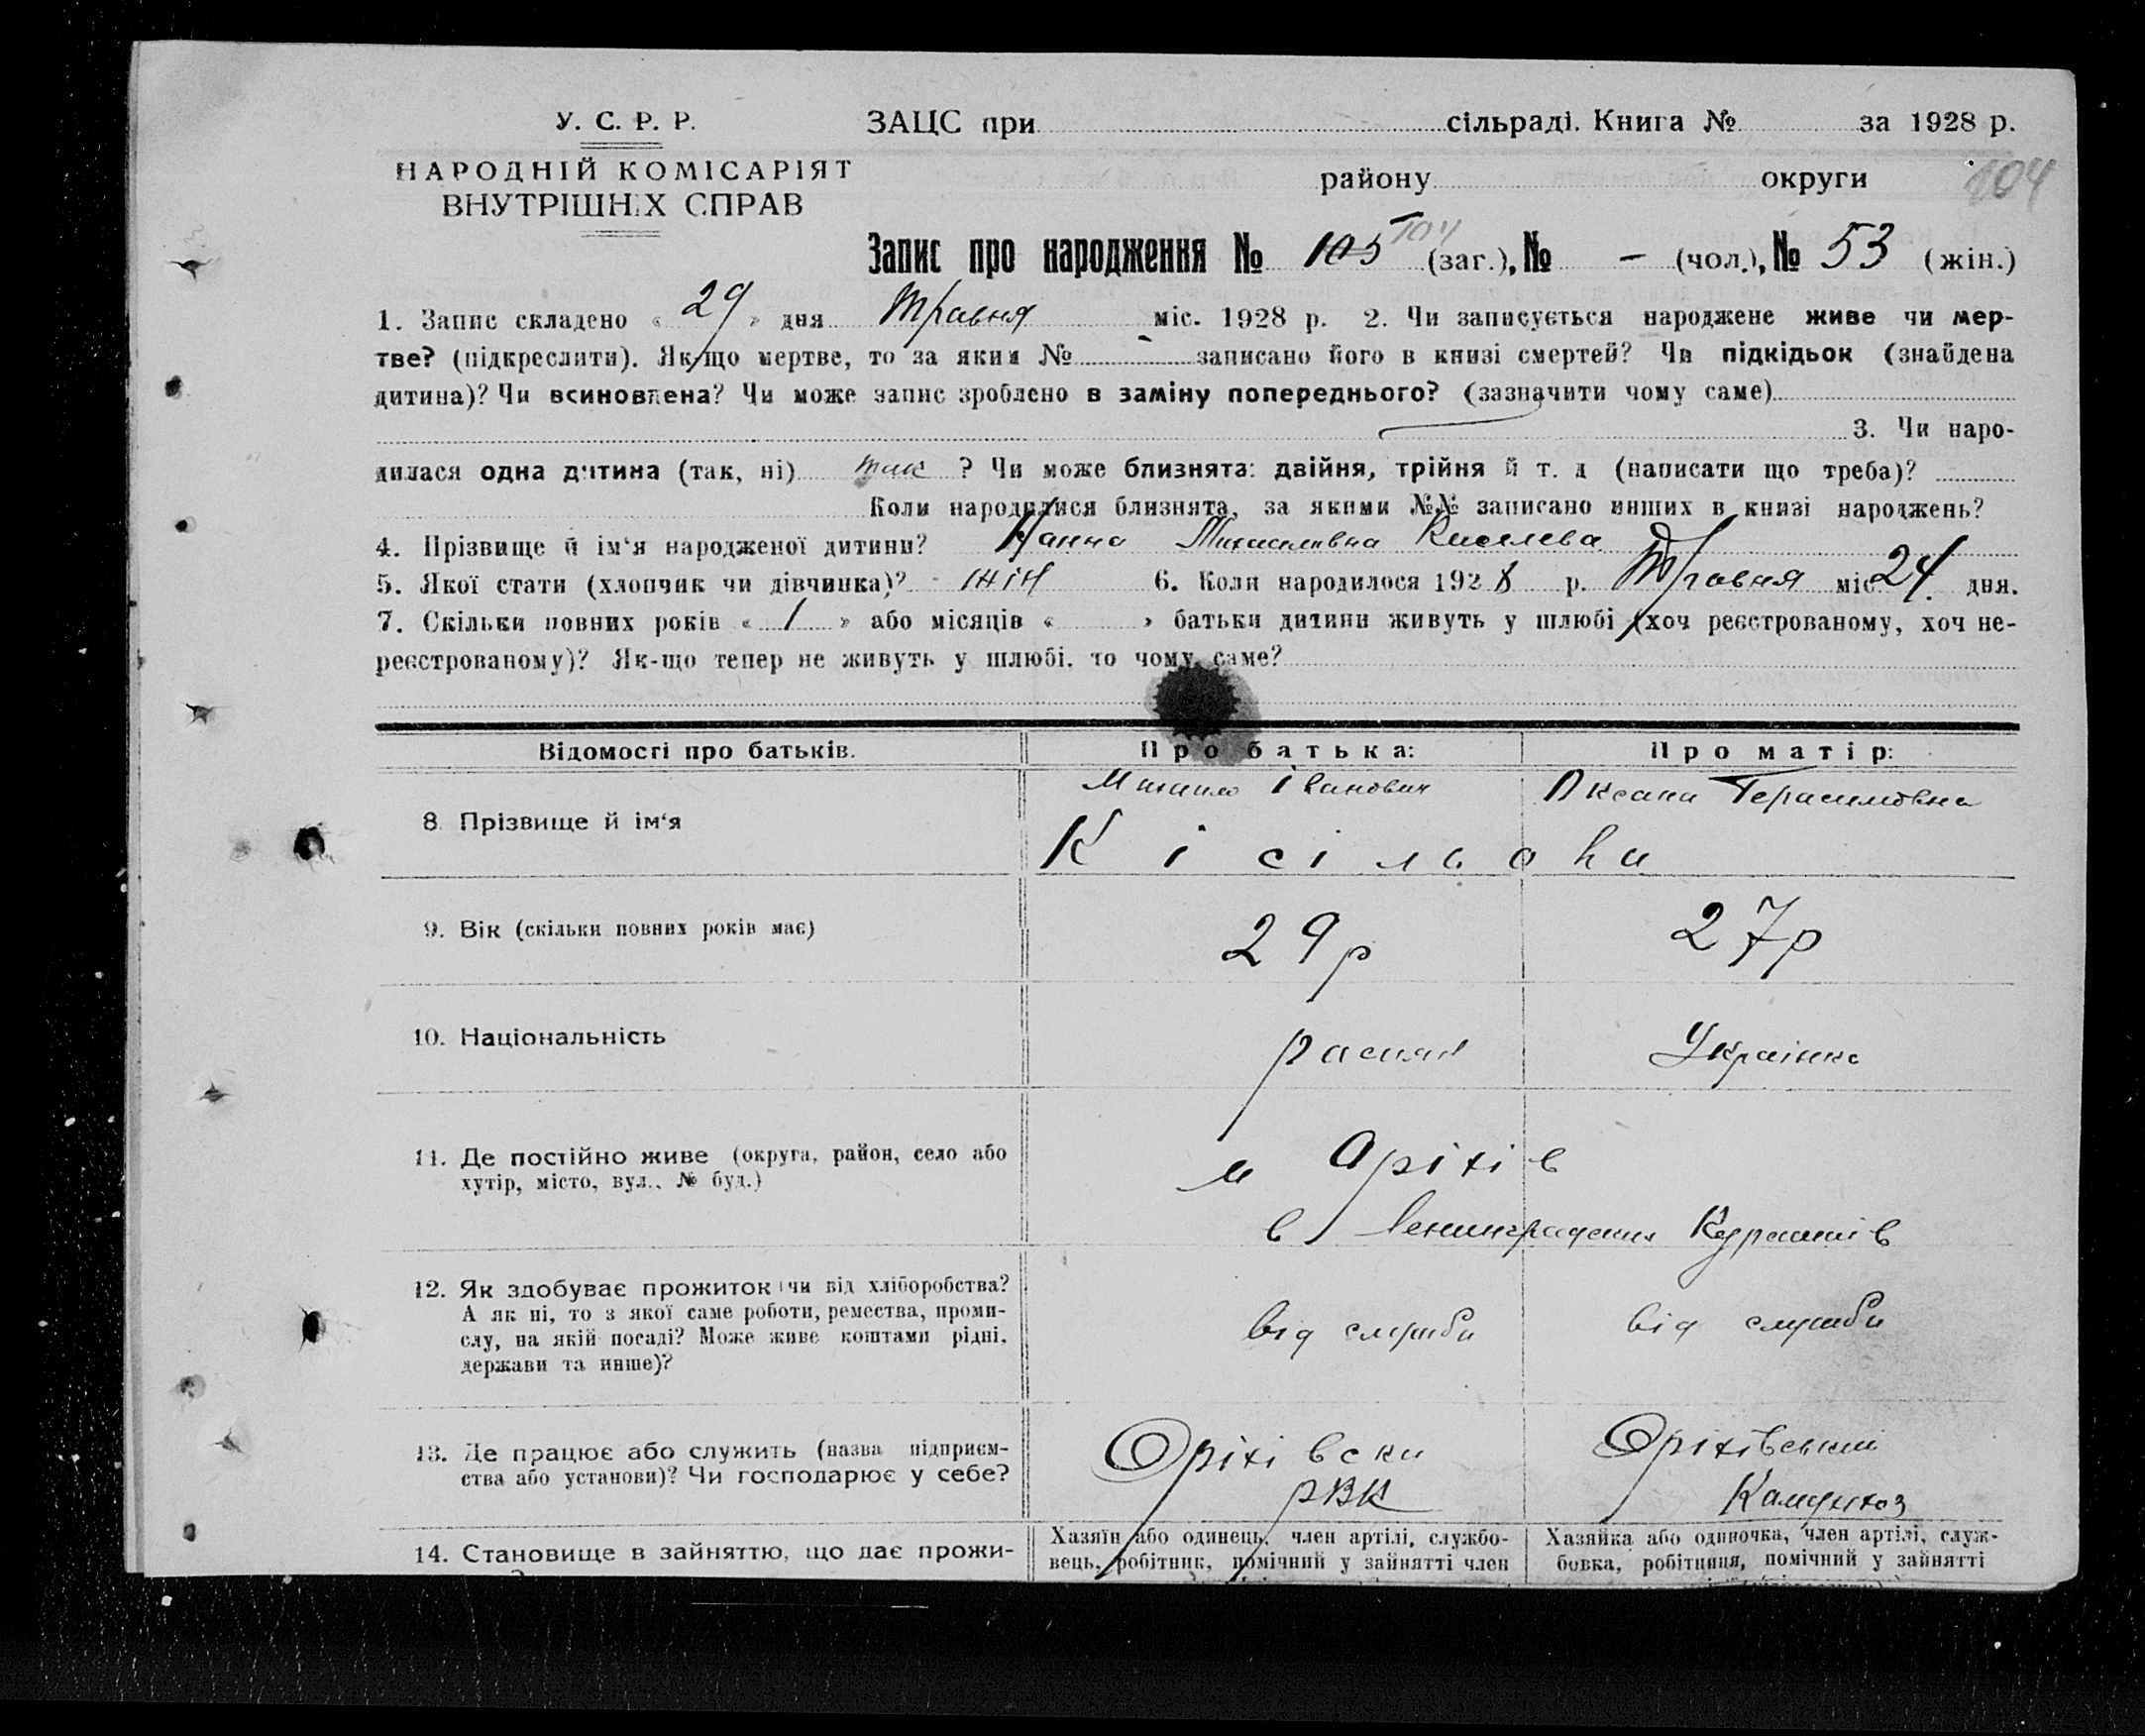 У. С. Р. Р.
ЗАЦС при сільраді. Книга № за 1928 р.
НАРОДНІЙ КОМІСАРІЯТ
ВНУТРІШНІХ СПРАВ
району округи 104
Запис про народження № 105 104 (заг.), № – (чол.), № 53 (жін.)
1. Запис складено « 29 » дня Травня міс. 1928 р. 2. Чи записується народжене живе чи мер-
тве? (підкреслити). Як-що мертве, то за яким № - записано його в книзі смертей? Чи підкідьок (знайдена
дитина)? Чи всиновлена? Чи може запис зроблено в заміну попереднього? (зазначити чому саме)
3. Чи наро-
дилася одна дитина (так, ні) так ? Чи може близнята: двійня, трійня й т. д (написати що треба)?
Коли народилися близнята, за якими №№ записано инших в книзі народжень?
4. Прізвище й ім‘я народженої дитини? Ганна Михаиливна Киселева
5. Якої стати (хлопчик чи дівчинка)? жін 6. Коли народилося 1928 р. Травня міс. 24 дня.
7. Скільки повних років « 1 » або місяців « » батьки дитини живуть у шлюбі (хоч реєстрованому, хоч не-
реєстрованому)? Як-що тепер не живуть у шлюбі, то чому саме?
Відомості про батьків. Про батька: Про матір:
Михаило Іванович Оксана Герасимовна
8. Прізвище й ім‘я
Кісільови
9. Вік (скільки повних років має) 29р 27р
10. Національність Українка
11. Де постійно живе (округа, район, село або
хутір, місто, вул., № буд.)
м Оріхів
в
12. Як здобуває прожиток чи від хліборобства?
А як ні, то з якої саме роботи, ремества, проми-
слу, на якій посаді? Може живе коштами рідні,
держави та инше)?
від служби від служби
13. Де працює або служить (назва підприєм-
ства або установи)? Чи господарює у себе?
Оріхівски
РВК
Оріхівський
14. Становище в зайняттю, що дає прожи-
Хазяїн або одинець, член артілі, службо-
вець, робітник, помічний у зайнятті член
Хазяйка або одиночка, член артілі, служ-
бовка, робітниця, помічний у зайнятті